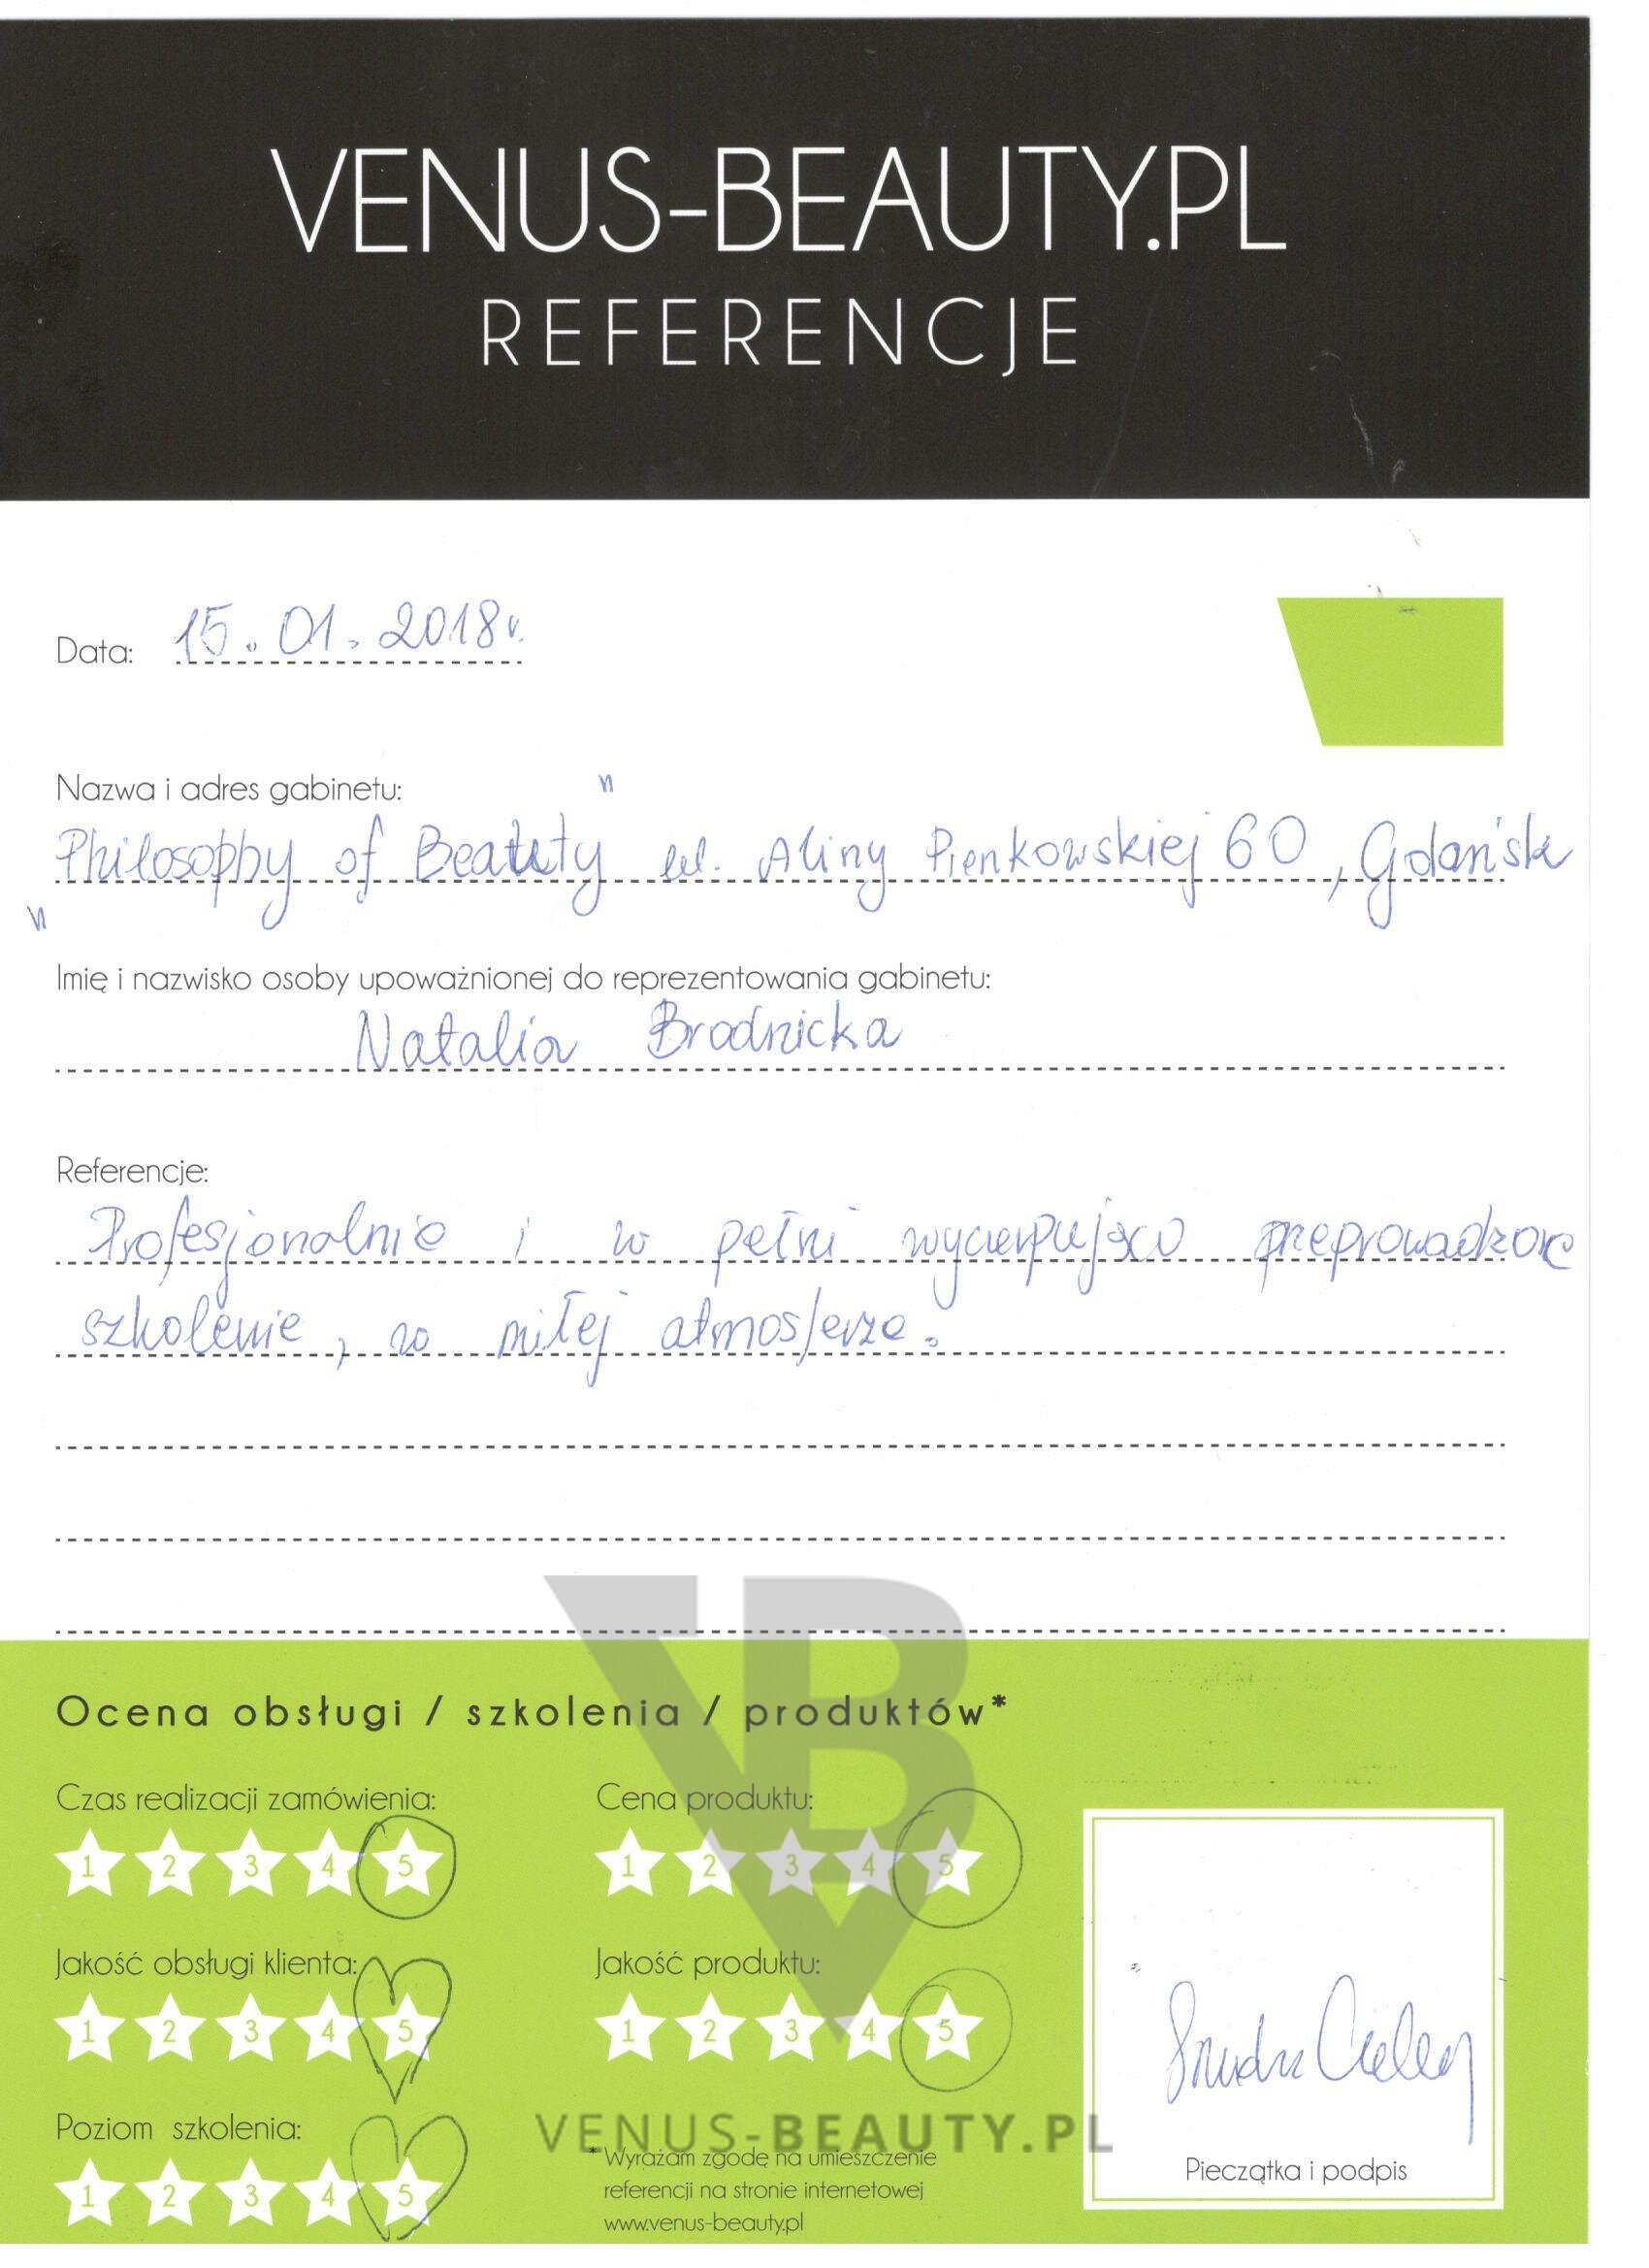 VENUS-BEAUTY.PL
REFERENCJE
Data: 15.01.2018r.
Nazwa i adres gabinetu:
"Philosophy of Beauty" ul. Aliny Pienkowskiej 60, Gdańsk
Imię i nazwisko osoby upoważnionej do reprezentowania gabinetu:
Natalia Brodnicka
Referencje:
Profesjonalnie i w pełni wyczerpująco przeprowadzone
szkolenie, w miłej atmosferze.
Ocena obsługi / szkolenia / produktów*
Czas realizacji zamówienia:
1 2 3 4 5
Cena produktu:
1 2 3 4 5
Jakość obsługi klienta:
1 2 3 4 5
Jakość produktu:
1 2 3 4 5
Poziom szkolenia:
1 2 3 4 5
VENUS-BEAUTY.PL
*Wyrażam zgodę na umieszczenie
referencji na stronie internetowej
www.venus-beauty.pl
Pieczątka i podpis